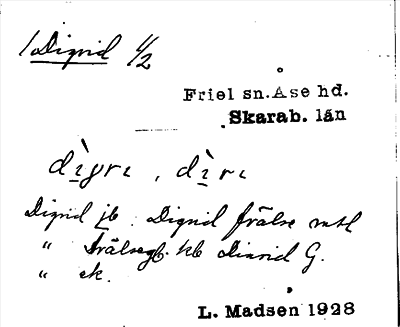 Digrid 1/2
Friel sn. Åse hd.
Skarab. län
dìgrı, dìrı
Digrid jb. Digrid frälse mtl
" frälseg. kb Dinrid G.
" ek.
L. Madsen 1928